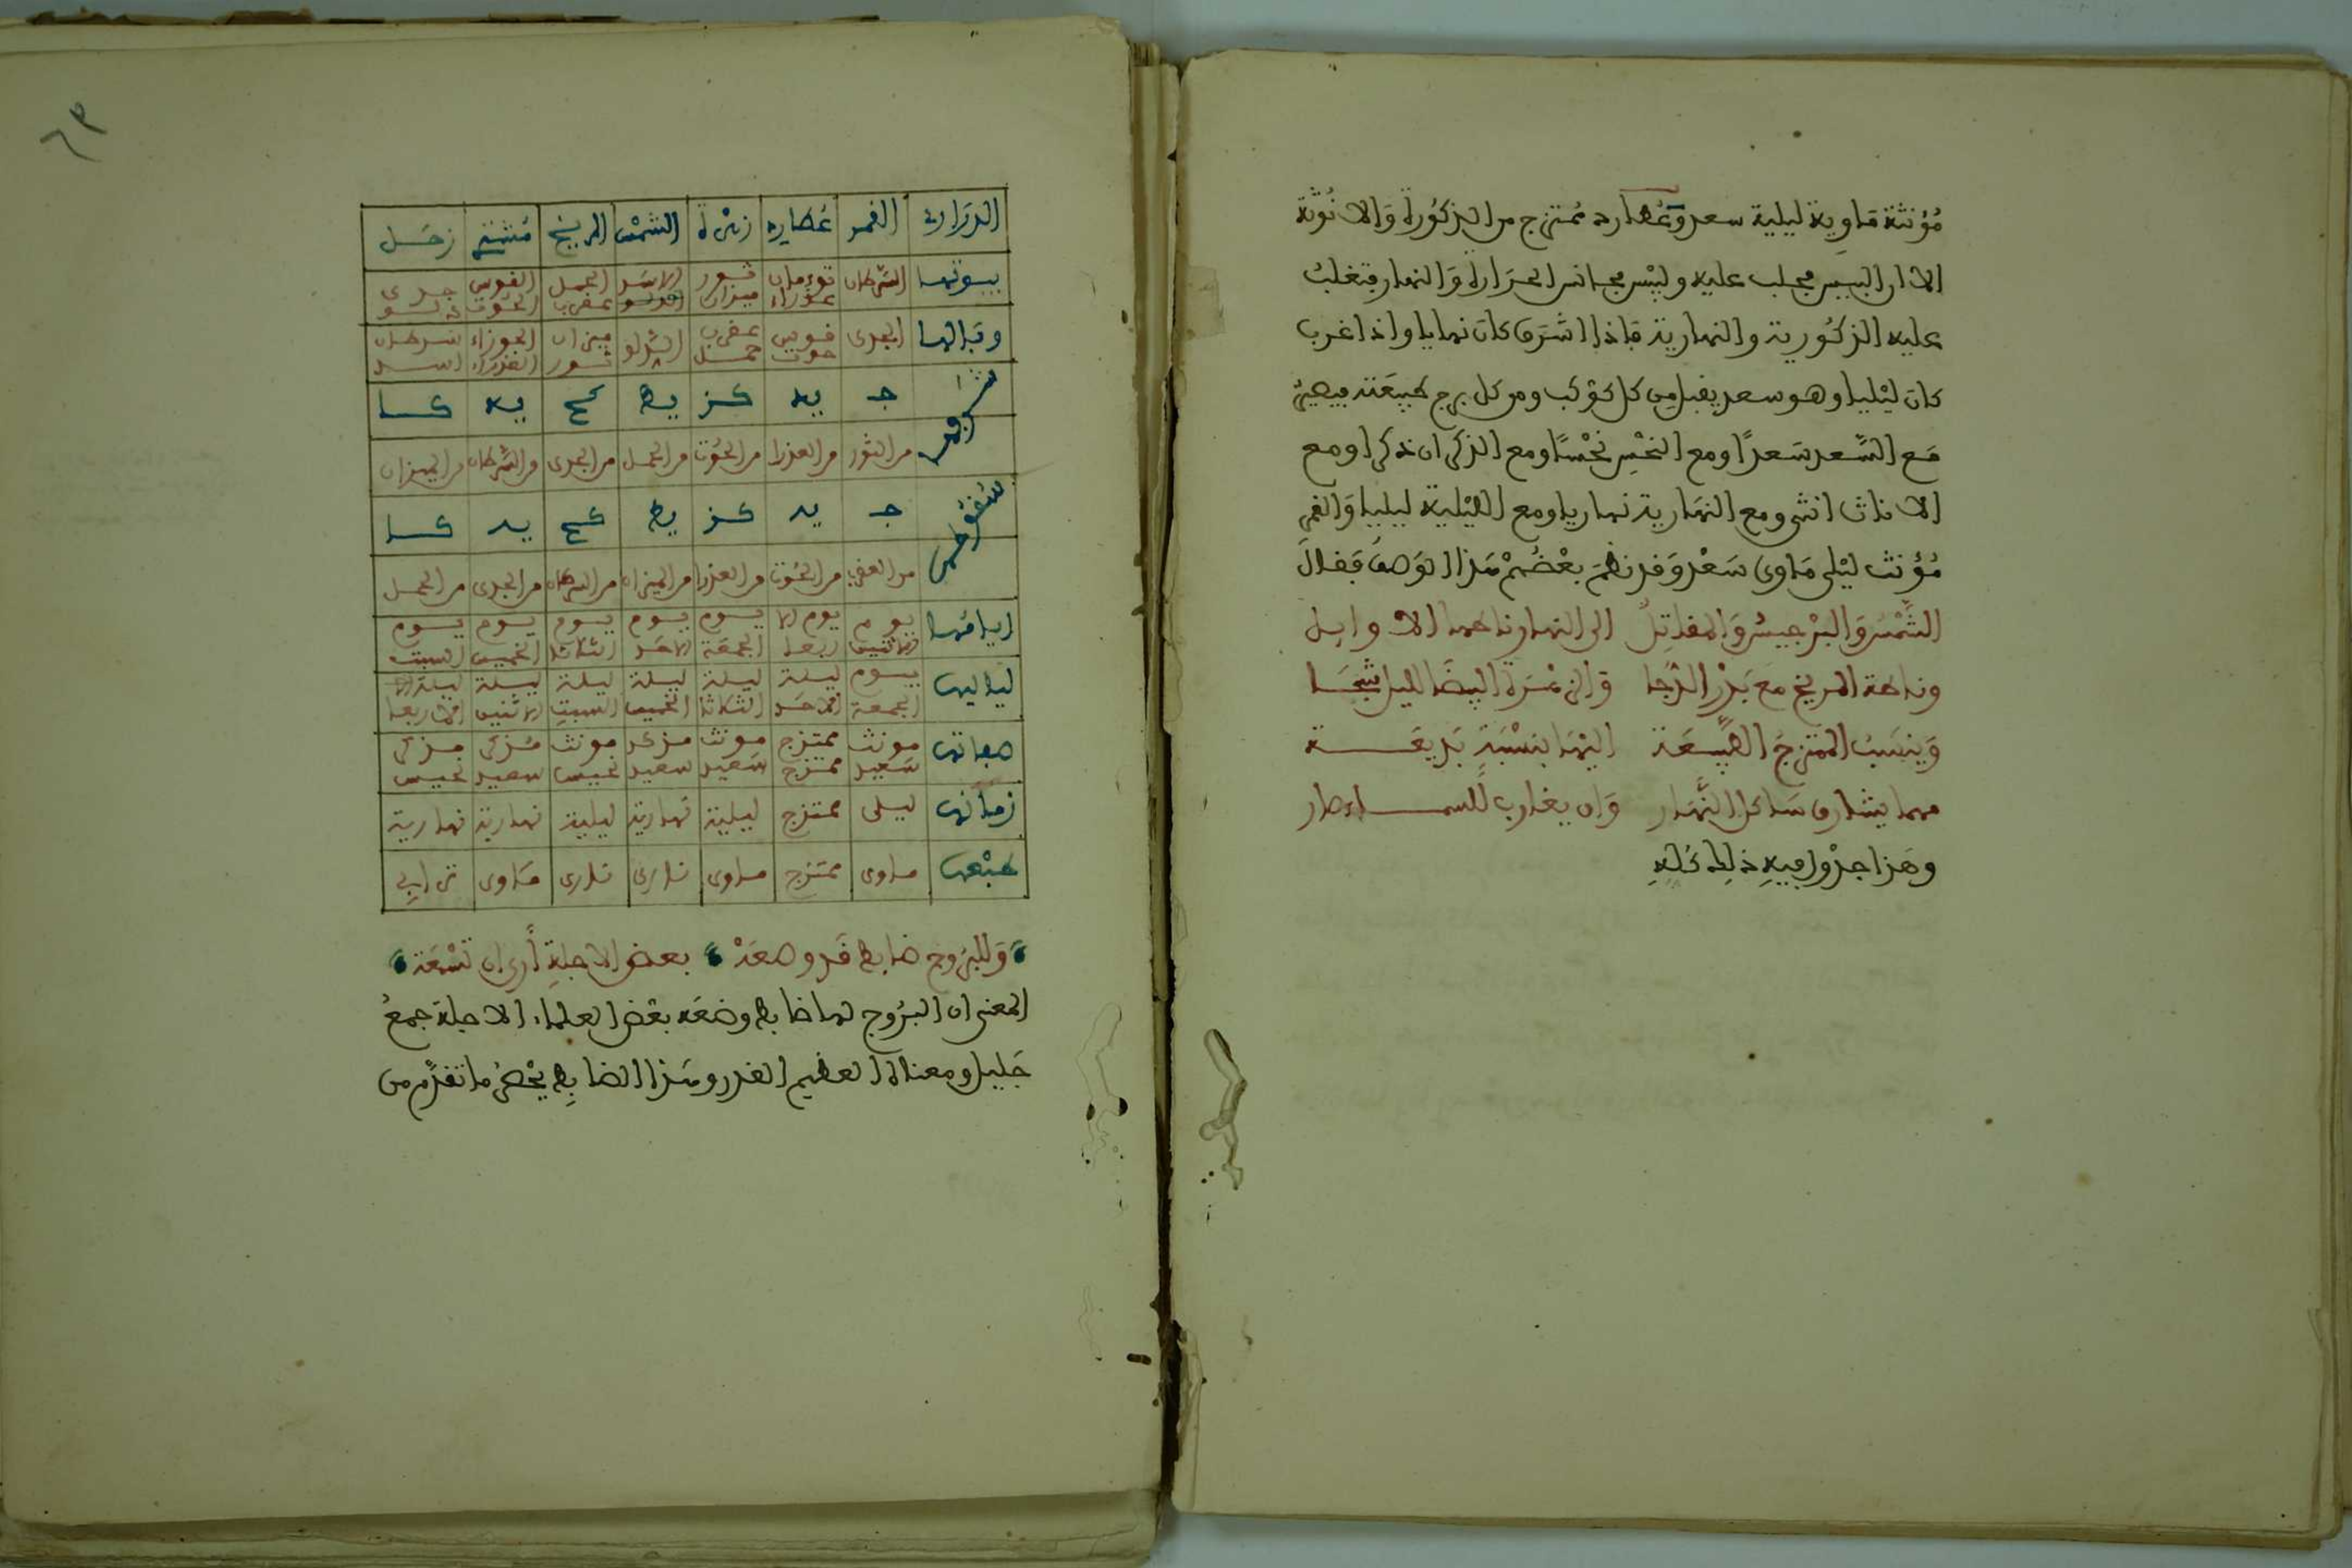 مُؤنثة مَاوِية ليلية سعد وَعُطارد مُمتزج من الذكُورة وَالانُوثة
الا ان اليبس يجلب عليه وليْس مجانس الحرَارة وَالنهار فتغلبُ
عليه الذكُورية والنهارية فاذا اشرَق كان نهاريا واذا غرب
كان ليْليا وهو سعد يقبل من كل كوْكب ومن كل برج طبيعَته فيصيرُ
مَع السَّعد سَعدًا ومع النحْسِ نحْسًا ومع الذكران ذكرا ومع
الاناث انثى ومع النهَارية نهاريا ومع الليْلية ليليا وَالقمرِ
مُؤنث ليْلي مَاوي سَعْد وَقد نظمَ بعْضُهمْ هَذا الوَصف فَقالَ
الشَّمْسُ وَالبرْجيسُ وَالمقاتِلُ الى النهار ناطها الاوايل
وناطة المريخ مع بَدْر الدُّجَا والزهْرَة البيضَا لليل
وَينسَبُ الممتزجَ الطَّبيعَة اليْهمَا بنسْبَةٍ بَديعَة
مهما يشارق شاكل النَّهَار وَان يغارب للمساء صار
وهَذا جدْول فيهِ ذلِك كُلهِ
الدرَاري القمر عُطارد زهْرة الشمْس المريخ مُشتري زحَل
بيوتها السَّرطان توءمان عذراء ثور ميزان الاسَد الحمل عقرب القوس الحُوت جدي دلو
وبَالها الجدي قوس حوت عقرب حمل الدَّلو ميزان ثور الجوزاء العذراء سرطان اسد
شرفهن جـ يه كز يط كح يه كا
من الثور من العذرا من الحُوت من الحمل من الجدي من السَّرطان من الميزان
سُقوطهن جـ يه كز يط كح يه كا
من العقرب من الحُوت من العذرا من الميزان من السرطان من الجدي من الحمل
ايامَها يوم الاثنين يوم الاربعا يوم الجمعَة يوم الاحَد يوم الثلاثا يوم الخميس يوم السبت
لياليها يوم الجمعة ليلة الاحَد ليلة الثلاثا ليلة الخميس ليلة السبت ليلة الاثنين ليلة الاربعا
صفاتها مونث سَعيد ممتزج ممتزج مونث سَعيد مذكر سعيد مونث نحيس مُذكر سعيد مذكر نحيس
زمانها ليلي ممتزج ليلية نهارية ليلية نهارية نهارية
طبْعها ماوي ممتزج ماوي ناري ناري هَاوي ترابي
وَللبرُوج ضابط قَد وضعَهْ بعض الاجلةِ أرى ان تسْمَعَه
المعنى ان البرُوج لها ضابط وضعَه بعْض العلماء الاجلة جمعُ
جَليل ومعناه العظيم القدر وهَذا الضابِط يخْصُ ما تقدَّم من